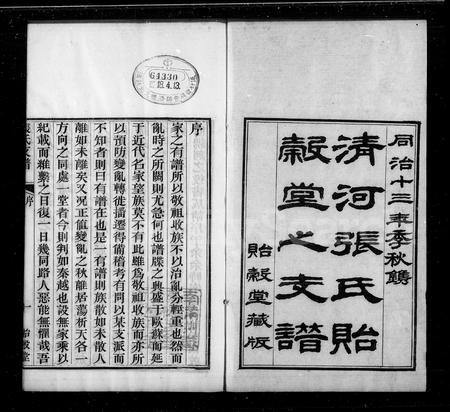 同治十三年季秋鐫
清河張氏貽
穀堂之支譜
貽穀堂藏版
64330
18.4.13
序
家之有譜所以敬祖收族不以治亂分輕重也然而
亂時之所關則尤急何也譜牒之興盛于歐蘇而延
于近代名家望族莫不有此雖爲敬祖收族而亦所
以預防變亂轉徙播遷得備稽考有問以某支某派而
不知者則曰有譜在也是一有譜則族散如未散人
離如未離矣又况正值變亂之秋離居蕩析天各一
方向之同處一堂者今則判如秦越也設無家乘以
紀載而維繫之日復一日幾同路人惡能無懼哉吾
張氏支譜
序
一
貽穀堂